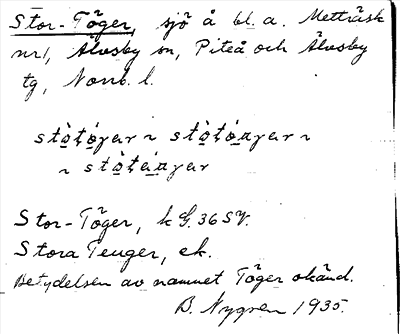 Stor-Töger, sjö å bl. a. Metträsk
nr 1, Älvsby sn, Piteå och Älvsby
tg, Norrb. l.
Stor-Töger, k G. 36 SV.
Stora Teuger, ek.
Betydelsen av namnet Töger okänd.
B. Nygren 1935.